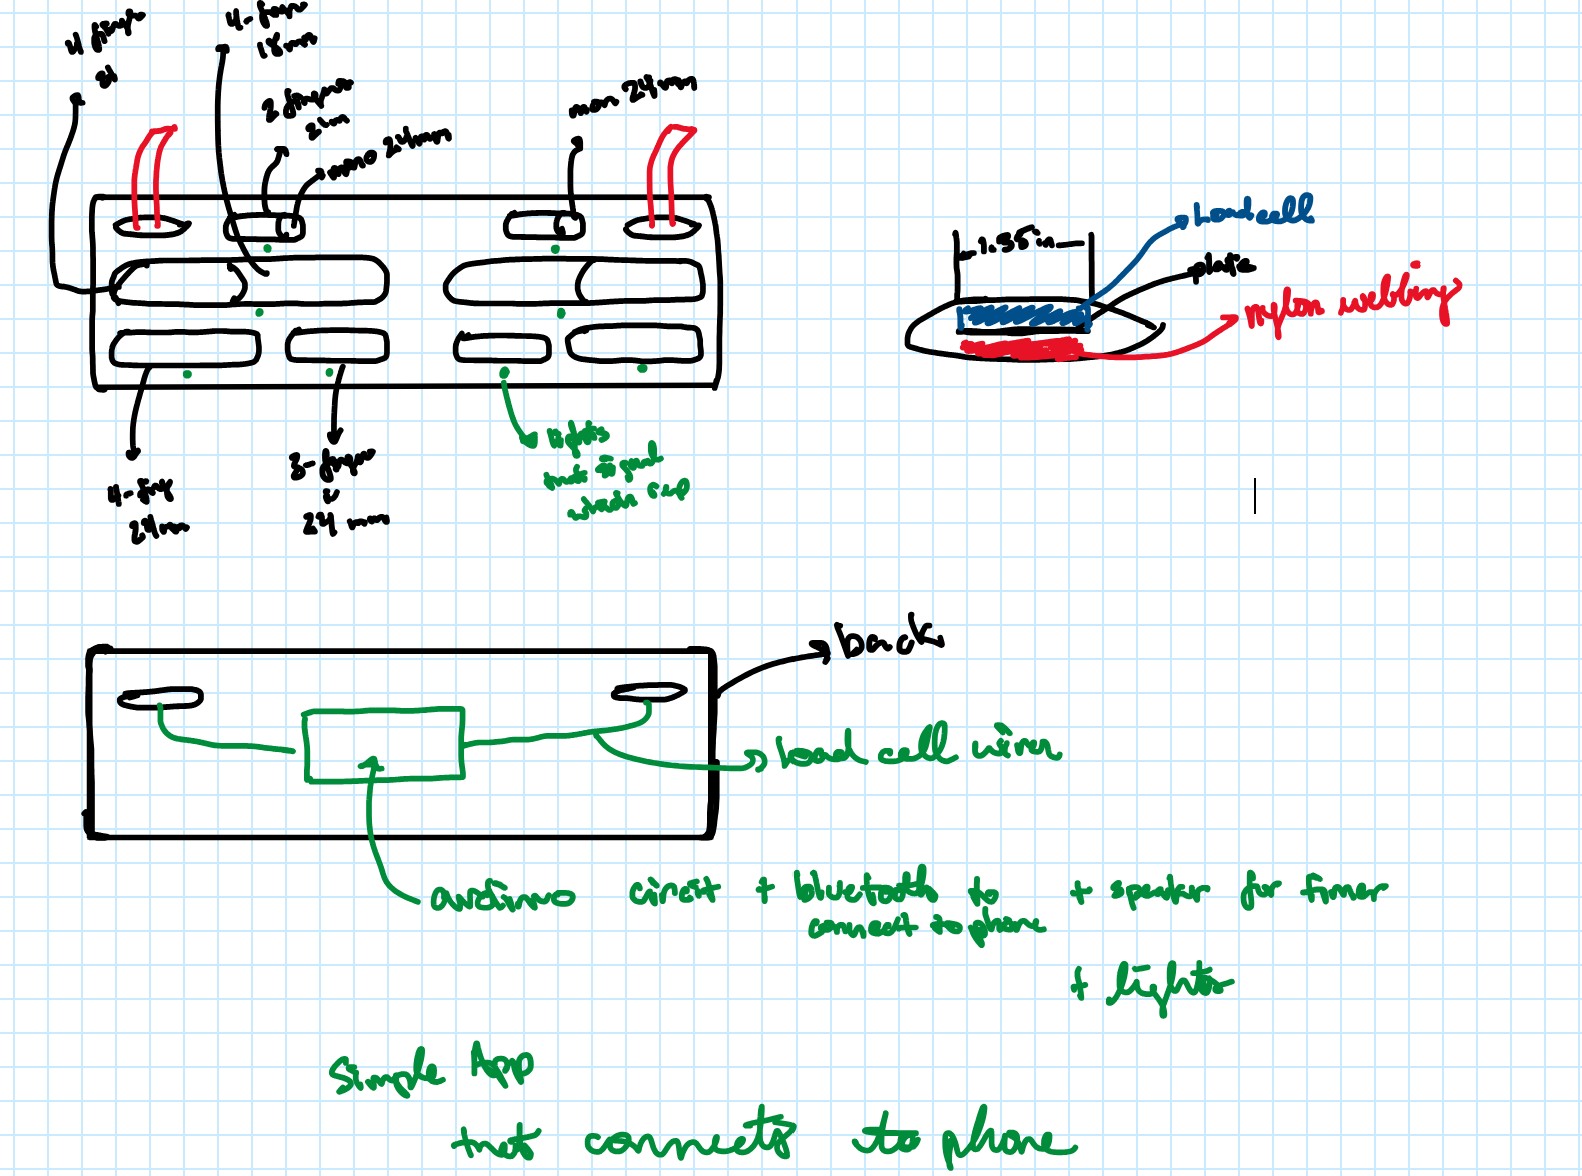 4 finger
4-finger
18mm
2 finger
mono 24mm
mono 24mm
1.35 in
Loadcell
plate
nylon webbing
4-fing
24mm
3-finger
24 mm
lights
that signal
which grip
back
Load cell wires
ardino circit + bluetooth to + speaker for timer
connect to phone
+ lights
Simple App
that connects to phone